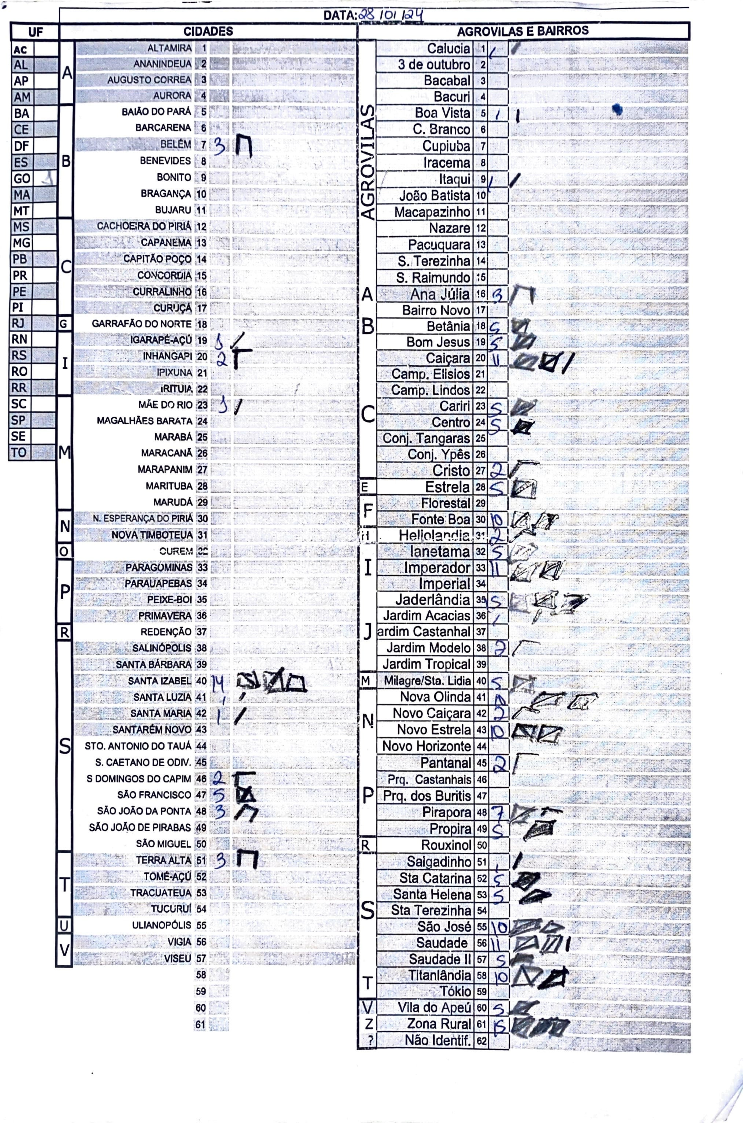 DATA: 28/01/24
UF CIDADES AGROVILAS E BAIRROS
AC
AL
AP
AM
BA
CE
DF
ES
GO 1
MA
MT
MS
MG
PB
PR
PE
PI
RJ
RN
RS
RO
RR
SC
SP
SE
TO
A
ALTAMIRA 1
ANANINDEUA 2
AUGUSTO CORREA 3
AURORA 4
B
BAIÃO DO PARÁ 5
BARCARENA 6
BELÉM 7 3
BENEVIDES 8
BONITO 9
BRAGANÇA 10
BUJARU 11
C
CACHOEIRA DO PIRIÁ 12
CAPANEMA 13
CAPITÃO POÇO 14
CONCORDIA 15
CURRALINHO 16
CURUÇÁ 17
G
GARRAFÃO DO NORTE 18
I
IGARAPÉ-AÇÚ 19 1
INHANGAPI 20 2
IPIXUNA 21
IRITUIA 22
M
MÃE DO RIO 23 1
MAGALHÃES BARATA 24
MARABÁ 25
MARACANÃ 26
MARAPANIM 27
MARITUBA 28
MARUDÁ 29
N
N. ESPERANÇA DO PIRIÁ 30
NOVA TIMBOTEUA 31
O
OUREM 32
P
PARAGOMINAS 33
PARAUAPEBAS 34
PEIXE-BOI 35
PRIMAVERA 36
R
REDENÇÃO 37
S
SALINÓPOLIS 38
SANTA BÁRBARA 39
SANTA IZABEL 40 14
SANTA LUZIA 41 1
SANTA MARIA 42 1
SANTARÉM NOVO 43
STO. ANTONIO DO TAUÁ 44
S. CAETANO DE ODIV. 45
S DOMINGOS DO CAPIM 46 2
SÃO FRANCISCO 47 5
SÃO JOÃO DA PONTA 48 3
SÃO JOÃO DE PIRABAS 49
SÃO MIGUEL 50
T
TERRA ALTA 51 3
TOMÉ-AÇÚ 52
TRACUATEUA 53
TUCURUÍ 54
U
ULIANOPÓLIS 55
V
VIGIA 56
VISEU 57
58
59
60
61
AGROVILAS
Calucia 1 1
3 de outubro 2
Bacabal 3
Bacuri 4
Boa Vista 5 1
C. Branco 6
Cupiuba 7
Iracema 8
Itaqui 9 1
João Batista 10
Macapazinho 11
Nazare 12
Pacuquara 13
S. Terezinha 14
S. Raimundo 15
A
Ana Júlia 16 3
Bairro Novo 17
B
Betânia 18 5
Bom Jesus 19 5
Caiçara 20 11
Camp. Elisios 21
Camp. Lindos 22
C
Cariri 23 5
Centro 24 5
Conj. Tangaras 25
Conj. Ypês 26
Cristo 27 2
E
Estrela 28 5
F
Florestal 29
Fonte Boa 30 10
H
Heliolandia 31 2
I
Ianetama 32 5
Imperador 33 11
Imperial 34
J
Jaderlândia 35 15
Jardim Acacias 36 1
ardim Castanhal 37
Jardim Modelo 38 2
Jardim Tropical 39
M
Milagre/Sta. Lidia 40 5
N
Nova Olinda 41
Novo Caiçara 42 2
Novo Estrela 43 10
Novo Horizonte 44
P
Pantanal 45 2
Prq. Castanhais 46
Prq. dos Buritis 47
Pirapora 48 7
Propira 49 5
R
Rouxinol 50
S
Salgadinho 51 1
Sta Catarina 52 5
Santa Helena 53 5
Sta Terezinha 54
São José 55 10
Saudade 56 11
Saudade II 57 5
T
Titanlândia 58 10
Tókio 59
V
Vila do Apeú 60 5
Z
Zona Rural 61 15
?
Não Identif. 62